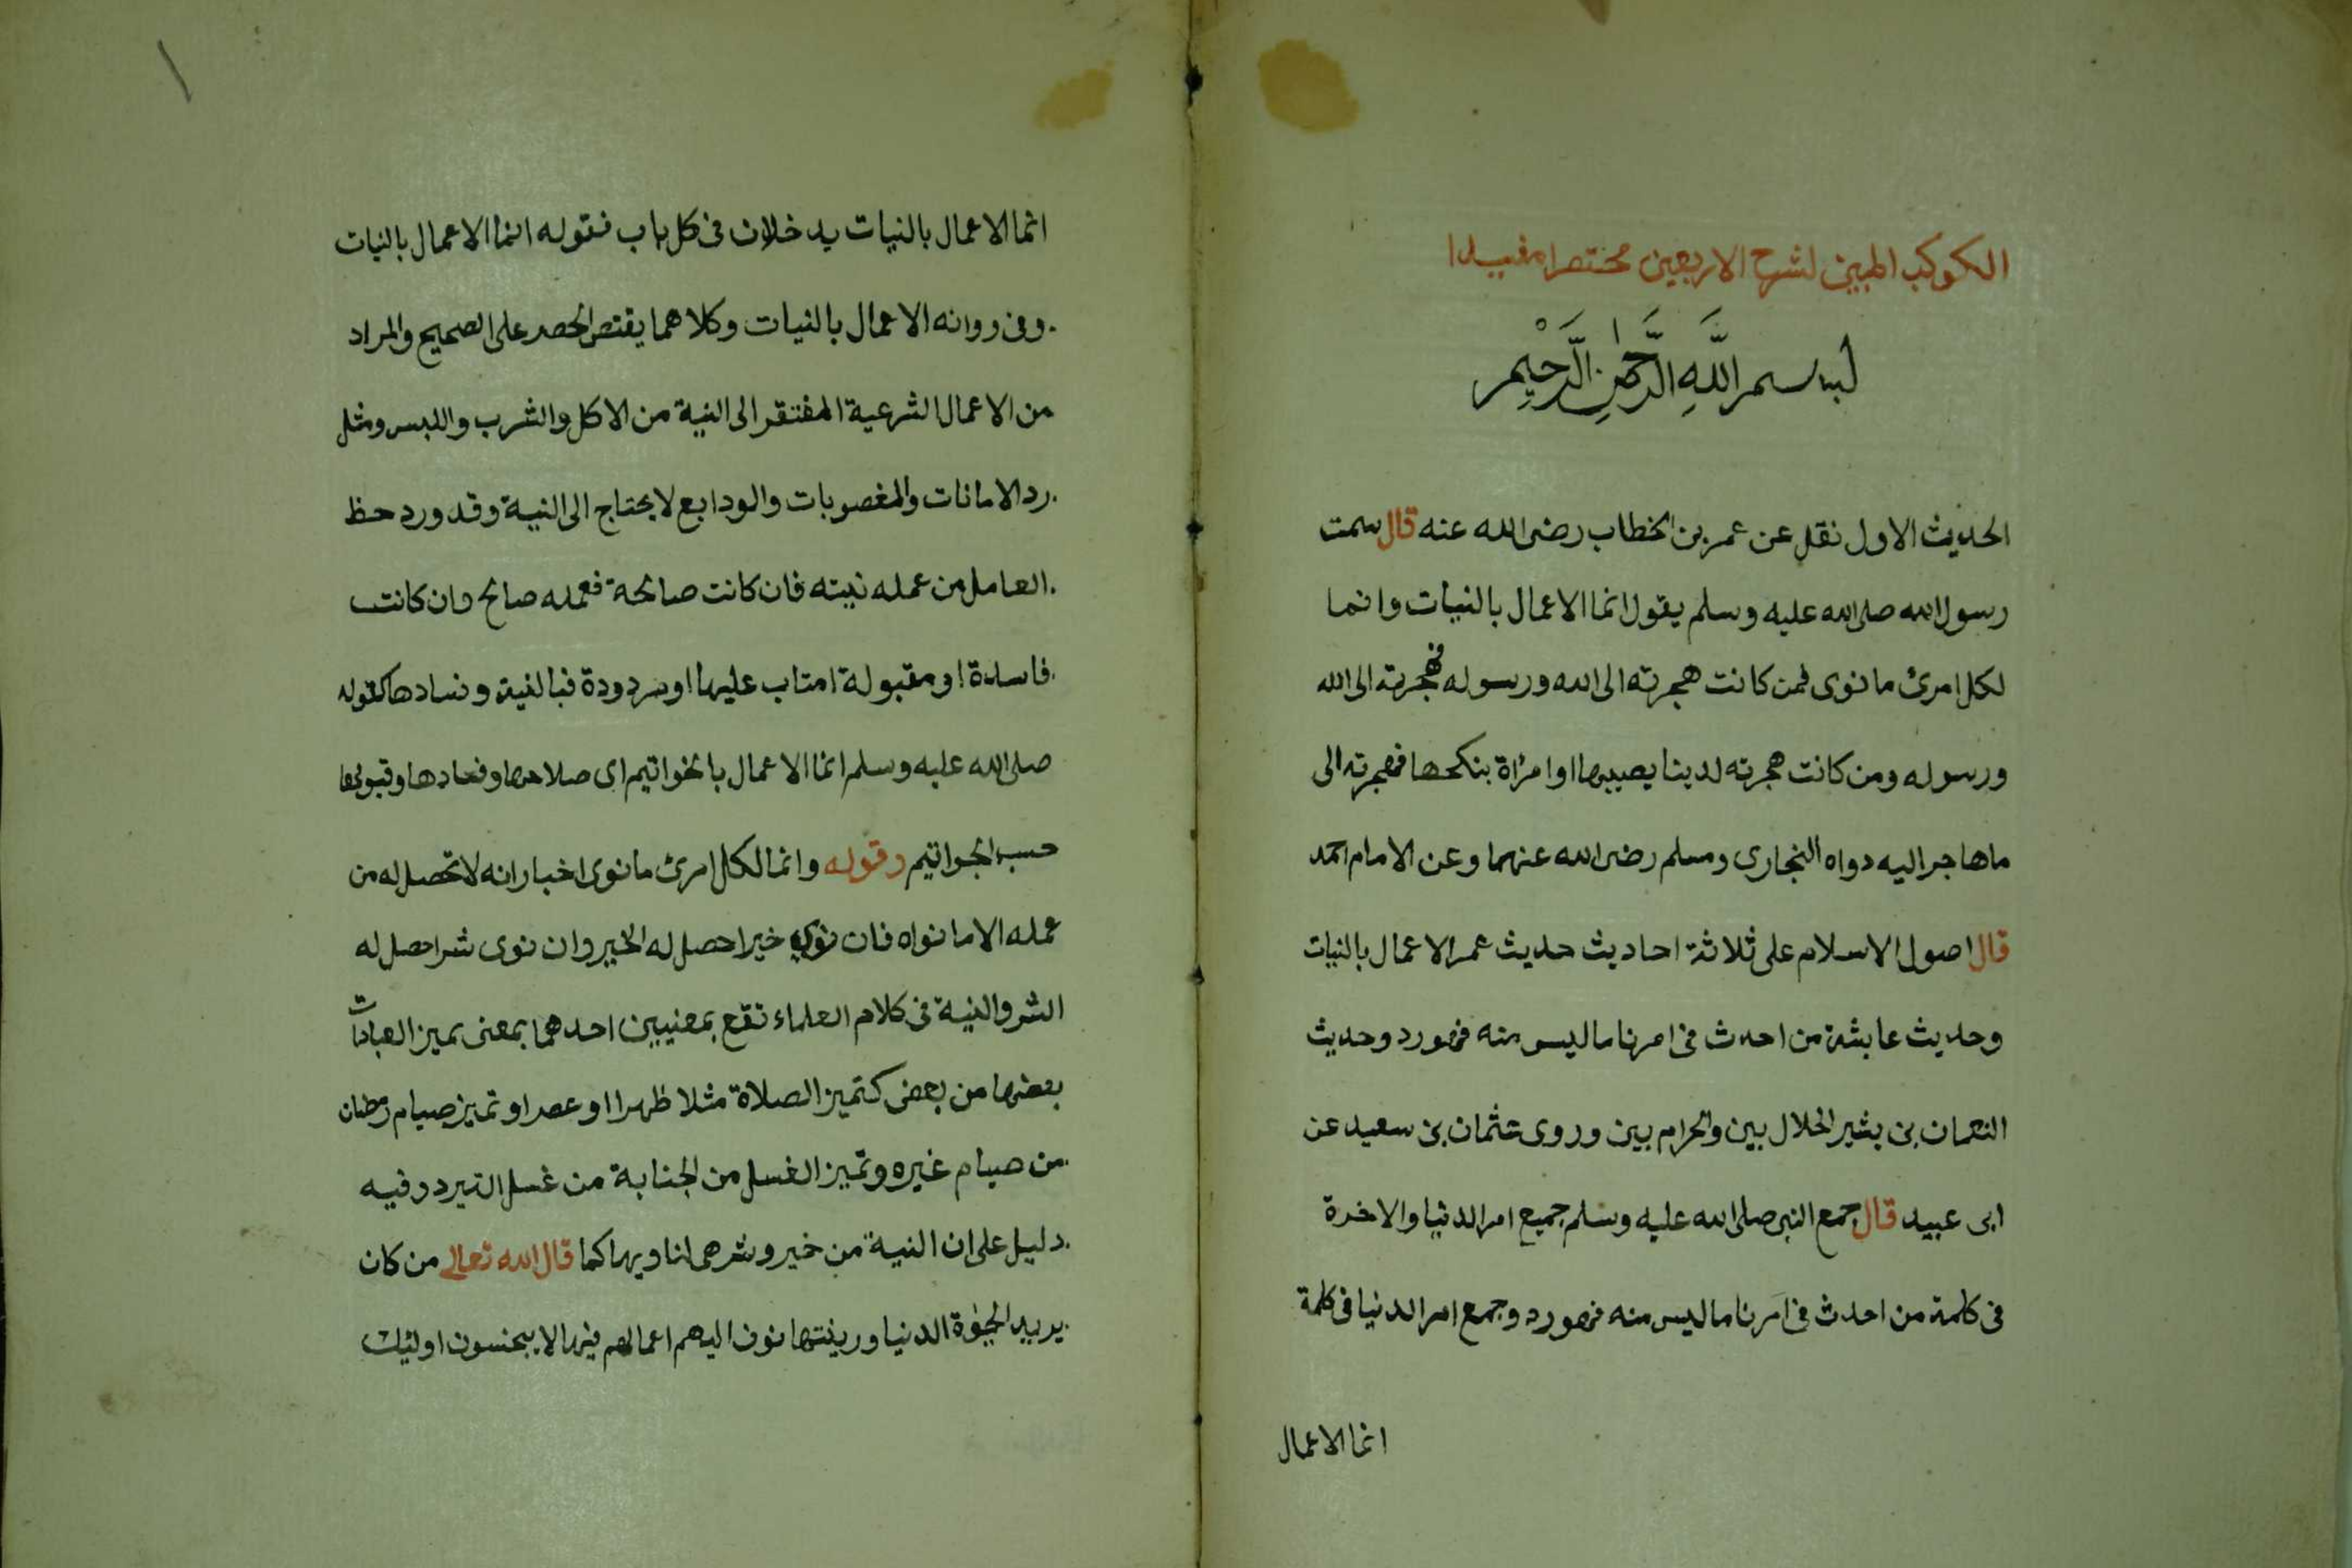 الكوكب المبين لشرح الاربعين مختصرا مفيدا
بسم اللَّهِ الرَّحمٰنِ الرَّحِيْمِ
الحديث الاول نقل عن عمر بن الخطاب رضى الله عنه قال سمت
رسول الله صلى الله عليه وسلم يقول انما الاعمال بالنيات وانما
لكل امرئ ما نوى فمن كانت هجرته الى الله ورسوله فهجرته الى الله
ورسوله ومن كانت هجرته لدينا يصيبها او امراة بنكحها فهجرته الى
ما هاجر اليه دواه البخارى ومسلم رضى الله عنهما وعن الامام احمد
قال اصول الاسلام على ثلاثة احاديث حديث عمر الاعمال بالنيات
وحديث عايشة من احدث فى امرنا ما ليس منه فهو رد وحديث
النعمان بن بشير الحلال بين والحرام بين وروى عثمان بن سعيد عن
ابى عبيد قال جمع النبى صلى الله عليه وسلم جميع امر الدنيا والاخرة
فى كلمة من احدث فى امرنا ما ليس منه فهو رد وجمع امر الدنيا فى كلمة
انما الاعمال
١
انما الاعمال بالنيات يدخلان فى كل باب فقوله انما الاعمال بالنيات
وفى روانه الاعمال بالنيات وكلاهما يقتص الحصر على الصحيح والمراد
من الاعمال الشرعية المفتقر الى النية من الاكل والشرب واللبس ومثل
رد الامانات والمغصوبات والودايع لا يحتاج الى النية وقد ورد حظ
العامل من عمله نيته فان كانت صالحة فعمله صالح وان كانت
فاسدة او مقبولة امتاب عليها او مردودة فبالنية وفسادها كقوله
صلى الله عليه وسلم انما الاعمال بالخواتيم اى صلاحها وفسادها وقبولها
حسب الخواتيم وقوله وانما لكل امرئ ما نوى اخبار انه لا تحصل له من
عمله الا ما نواه فان نوى خيرا حصل له الخير وان نوى شرا حصل له
الشر والنية فى كلام العلماء تقع بمعنيين احدهما بمعنى تميز العبادات
بعضها من بعض كتميز الصلاة مثلا ظهرا او عصرا وتميز صيام رمضان
من صيام غيره وتميز الغسل من الجنابة من غسل التبرد وفيه
دليل على ان النية من خير وشر هى لناويها كما قال الله تعالى من كان
يريد الحيوة الدنيا وزينتها نوف اليهم اعمالهم فيها لا يبخسون اوليك